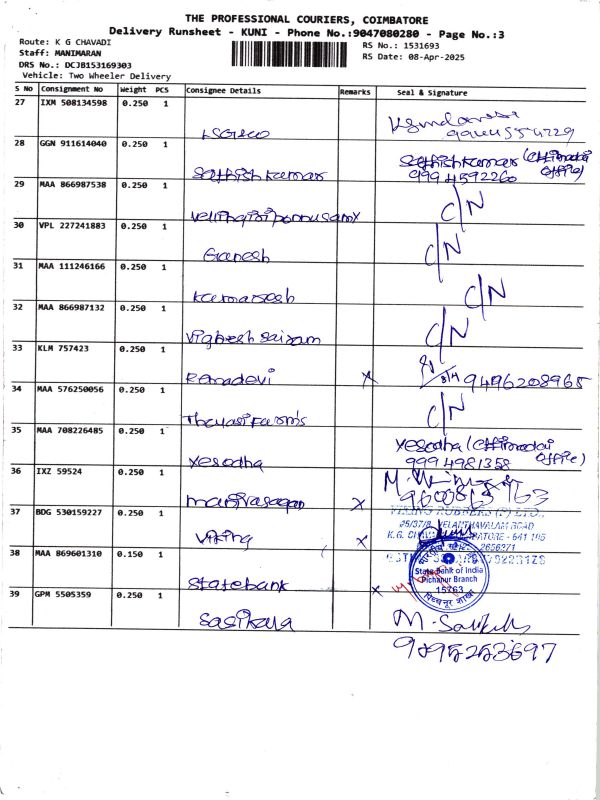 THE PROFESSIONAL COURIERS, COIMBATORE
Delivery Runsheet - KUNI - Phone No.:9047080280 - Page No.:3
Route: K G CHAVADI
RS No.: 1531693
Staff: MANIMARAN
RS Date: 08-Apr-2025
DRS No.: DCJB153169303
Vehicle: Two Wheeler Delivery
S No Consignment No Weight PCS Consignee Details Remarks Seal & Signature
27 IXM 508134598 0.250 1
28 GGN 911614040 0.250 1
Sathish kumar Sathishkumar (Ettimadai office)
9994592260
29 MAA 866987538 0.250 1
C/N
30 VPL 227241883 0.250 1
Ganesh C/N
31 MAA 111246166 0.250 1
C/N
32 MAA 866987132 0.250 1
Vignesh Sairam C/N
33 KLM 757423 0.250 1
Ramadevi x 8/4 9496208965
34 MAA 576250056 0.250 1
C/N
35 MAA 708226485 0.250 1
Yesodha Yesodha (Ettimadai office)
9994981358
36 IXZ 59524 0.250 1
Manivasagan x
37 BDG 530159227 0.250 1
VIKING RUBBERS (P) LTD.,
25/37/8, VELANTHAVALAM ROAD
Viking x K.G. CHAVADI, COIMBATORE - 641 105
38 MAA 869601310 0.150 1
State Bank of India
Pichanur Branch
15763
पिच्चनूर शाखा
Statebank x
39 GPM 5505359 0.250 1
Sasikala